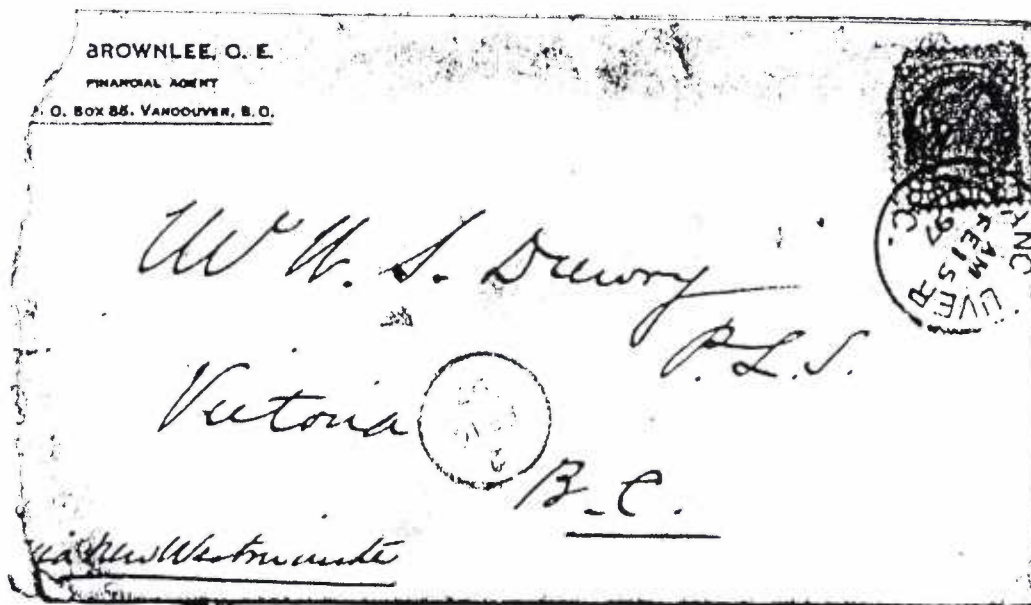 BROWNLEE, C. E.
FINANCIAL AGENT
O. BOX 85. VANCOUVER, B.C.
Mr W. S. Drewry
P. L. S.
Victoria
B.C.
via New Westminster
ANC UVER
AM
FE 15
97